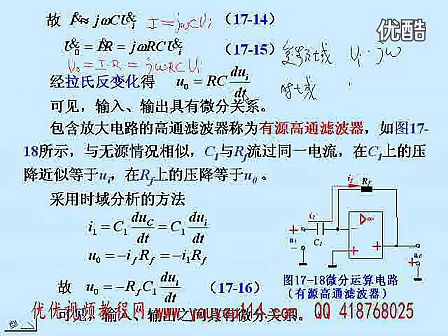 优酷
故 I&≈ jωCU& I = jωCUi (17-14)
U& = I&R = jωRCU& (17-15) 复频域 Ui · jω
U0 = I·R = jωRCUi
时域
经拉氏反变化得 u0 = RC dui/dt
可见，输入、输出具有微分关系。
包含放大电路的高通滤波器称为有源高通滤波器，如图17-
18所示，与无源情况相似，C1与Rf流过同一电流，在C1上的压
降近似等于ui，在Rf上的压降等于u0。
采用时域分析的方法
i1 = C1 duC/dt = C1 dui/dt
u0 = -ifRf = -i1Rf
故 u0 = -RfC1 dui/dt (17-16)
if Rf
i1 C1 ▷∞
ui u0
图17-18微分运算电路
（有源高通滤波器）
可见，输入、输出之间具有微分关系。
优优视频教程网 www.youyou114.com QQ 418768025